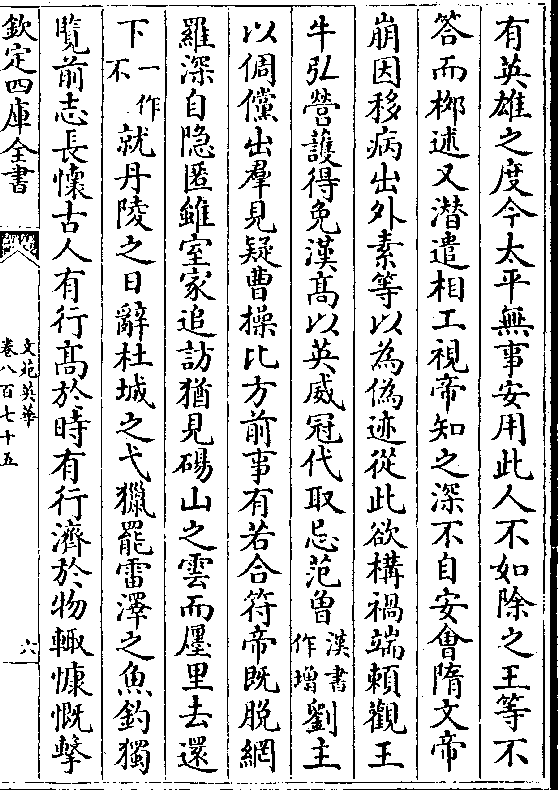 有英雄之度今太平無事安用此人不如除之王等不
答而柳述又潛遣相工視帝知之深不自安會隋文帝
崩因移病出外素等以為偽迹從此欲構禍端賴觀王
牛弘營護得免漢髙以英威冠代取忌范曽漢書作增劉主
以倜儻出羣見疑曹操比方前事有若合符帝既脱網
羅深自隐匿雖室家追訪猶見碭山之雲而㕓里去還
下一作不就丹陵之日辭杜城之弋獵罷雷澤之魚釣獨
覽前志長懷古人有行髙於時有行濟於物輙慷慨擊
欽定四庫全書
文苑英華
卷八百七十五
六